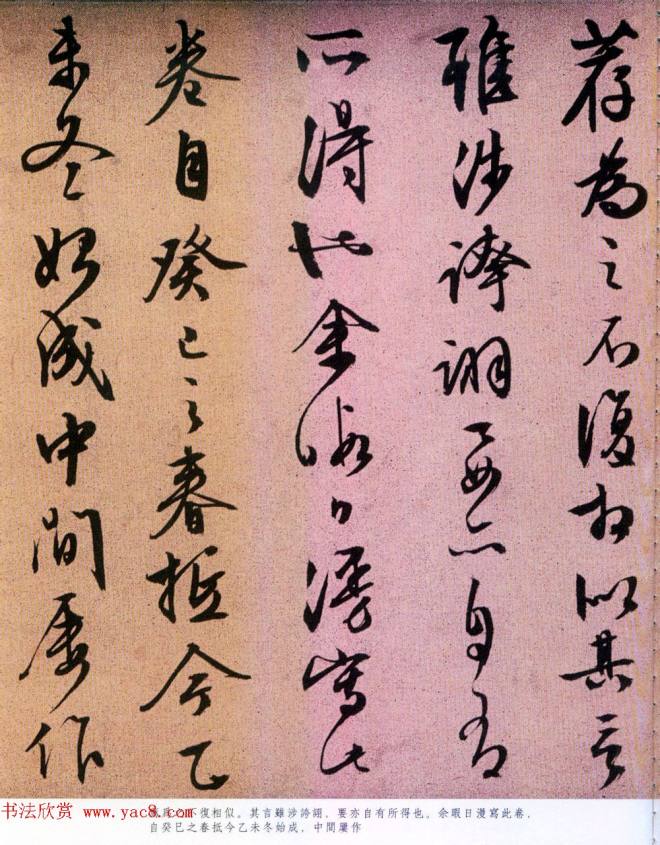 荐為之不復相似其言
雖涉誇詡要亦自有
所得也余暇日漫寫此
卷自癸巳之春抵今乙
未冬始成中間屢作
不復相似。其言雖涉誇詡，要亦自有所得也。余暇日漫寫此卷，
自癸巳之春抵今乙未冬始成，中間屢作
书法欣赏 www.yac8.com